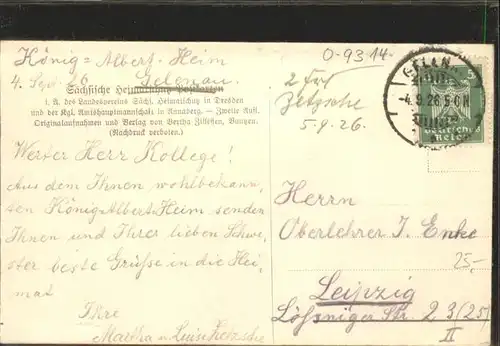 O-9314
König-Albert-Heim
4. Sept. 26 Gelenau.
Sächsische Heimatschutz Postkarten
i. A. des Landesvereins Sächs. Heimatschutz in Dresden
und der Kgl. Amtshauptmannschaft in Annaberg. — Zweite Aufl.
Originalaufnahmen und Verlag von Bertha Zillessen, Bautzen.
(Nachdruck verboten.)
5.9.26.
GELENAU
-4.9.26.5-6N
5
Deutsches
Reich
Werter Herr Kollege!
Aus dem Ihnen wohlbekann,
ten König-Albert-Heim senden
Ihnen und Ihrer lieben Schwe,
ster beste Grüße in die Hei,
mat
Ihre
Martha u. Luise
Herrn
Oberlehrer J. Enke
25,-
Leipzig
Lößniger Str. 23 (25)
II